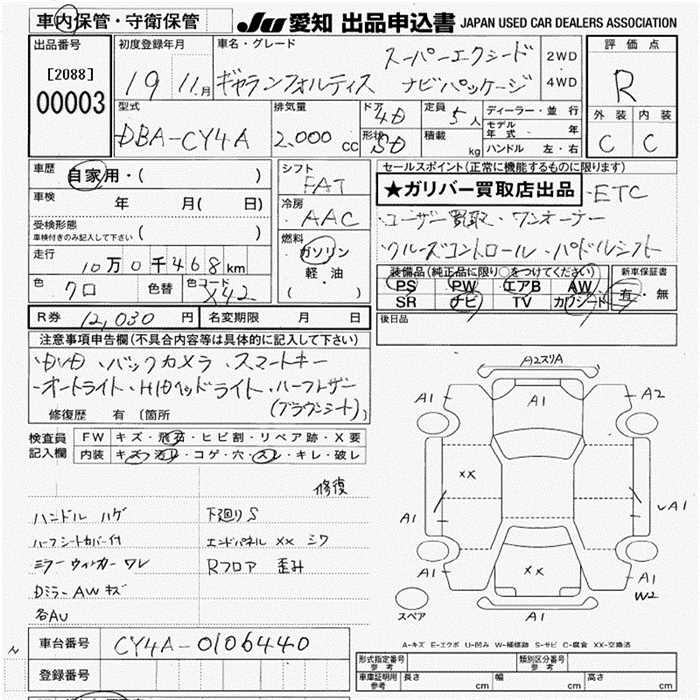 車内保管・守衛保管
JU 愛知 出品申込書 JAPAN USED CAR DEALERS ASSOCIATION
出品番号
[2088]
00003
初度登録年月
19 11月
車名・グレード
スーパーエクシード
ギャランフォルティス ナビパッケージ
2WD
4WD
評価点
R
外装 内装
C C
型式
DBA-CY4A
排気量
2,000 cc
ドア 4D
形状 SD
定員 5人
積載 kg
ディーラー・並行
モデル年式 年
ハンドル 左・右
車歴 自家用・( )
車検 年 月( 日)
受検形態
車検付きのみ記入して下さい ( )
走行 10万0千468km
色 クロ 色替 色コード X42
シフト
FAT
冷房
AAC
燃料
ガソリン
・
軽・油
( )
セールスポイント(正常に機能するものに限ります)
★ガリバー買取店出品 ・ETC
・ユーザー買取・ワンオーナー
・クルーズコントロール・パドルシフト
装備品(純正品に限り○をつけてください)
PS PW エアB AW
SR ナビ TV カワシート
新車保証書
有・無
R券 12,030円 名変期限 月 日
後日品
注意事項申告欄(不具合内容等は具体的に記入して下さい)
・DVD・バックカメラ・スマートキー
・オートライト・HIDヘッドライト・ハーフレザー
(ブラウンシート)
修復歴 有 〔箇所
検査員記入欄
FW キズ・飛石・ヒビ割・リペア跡・X要
内装 キズ・汚レ・コゲ・穴・スレ・キレ・破レ
修復
ハンドル ハゲ 下廻りS
ハーフシートカバー付 エンドパネル XX シワ
ミラーウィンカー ワレ Rフロア 歪み
DミラーAWキズ
各AU
A2スリA
A1
A1
A2
XX
A1
A1
XX
A1
A1
W2
A1
スペア
A-キズ E-エクボ U-凹み W-補修跡 S-サビ C-腐食 XX-交換済
車台番号 CY4A-0106440
登録番号
形式指定番号 参考
類別区分番号 参考
車庫証明用 参考 長さ cm 幅 cm 高さ cm